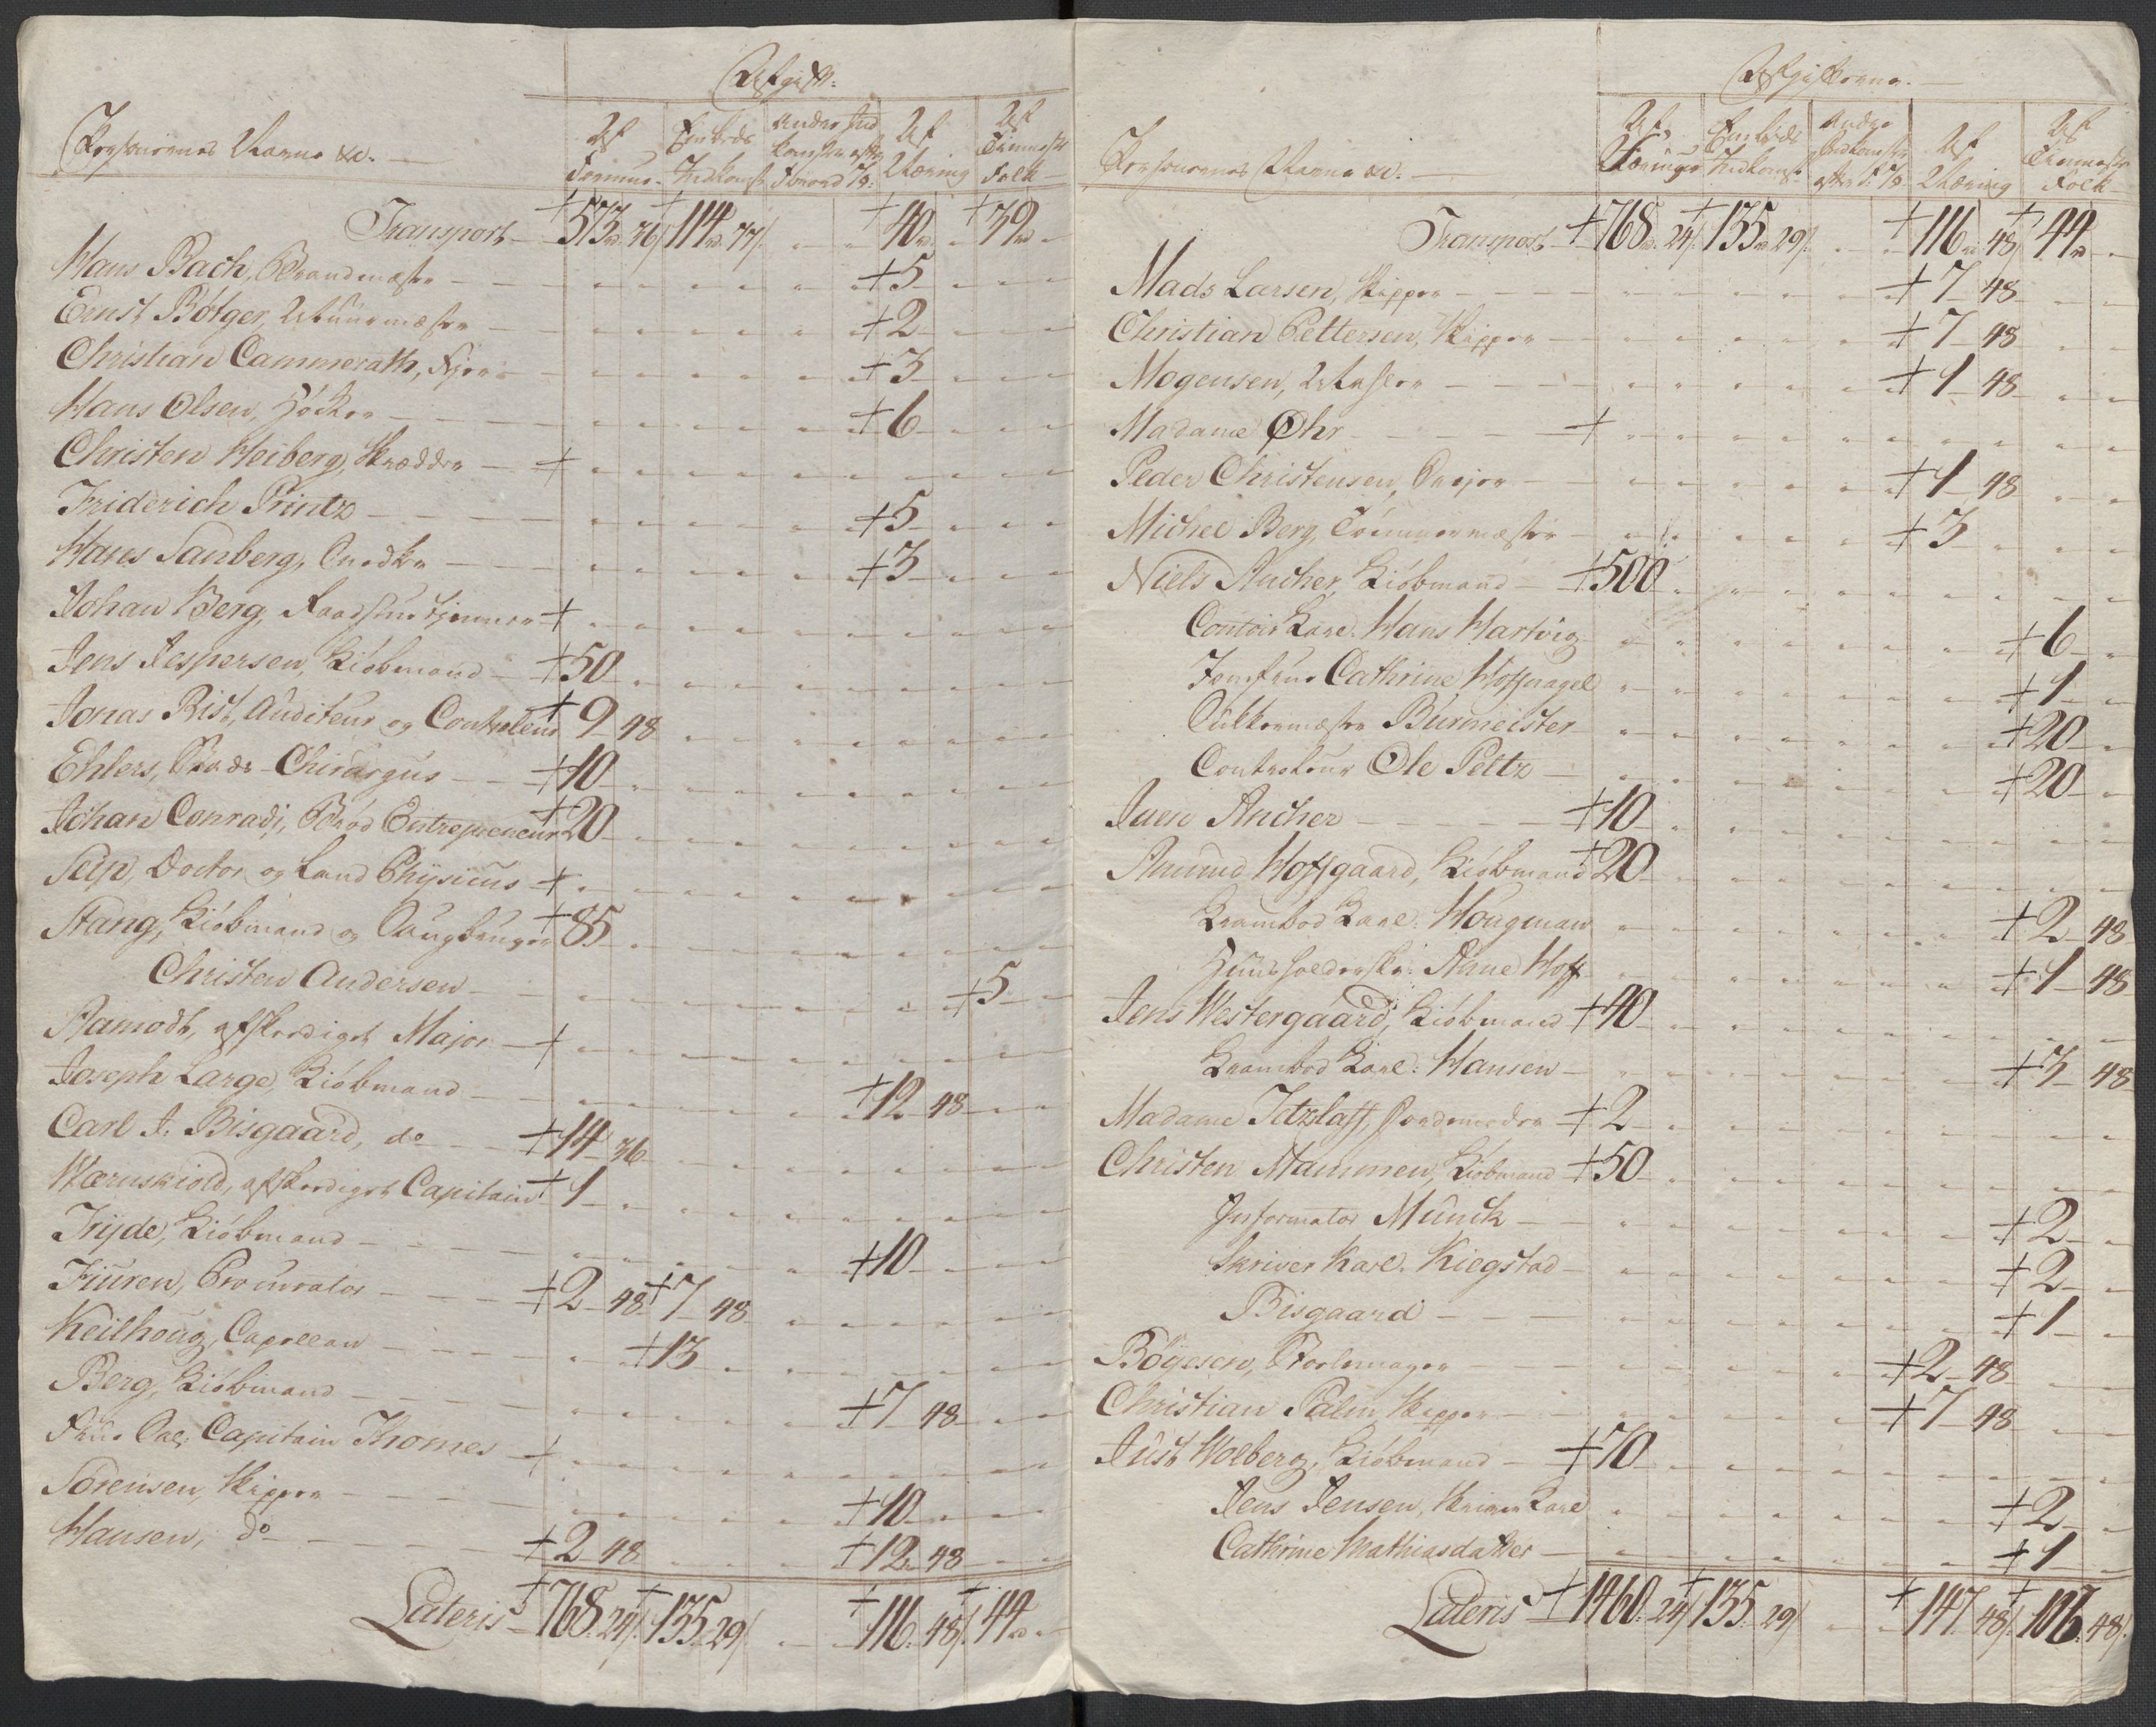 Afgift.
Personernes Navne &c.
Af Formue. Embeds Indkomst Andre Ind komster efter Forord. 7 §: Af Næring Af Tienneste Folk
Transport 573 rd 36 s 114 rd 77 s 40 rd 39 rd
Hans Bach, Brandmester 5
Ernst Bøtger, Muurmæster 2
Christian Cammerath, Kjører 3
Hans Olsen, Høcker 6
Christen Heiberg, Skrædder
Friderich Printz 5
Hans Sanberg, Snedker 3
Johan Berg, Raadstuetjennere
Jens Jespersen, Kiøbmand 50
Jonas Rist, Auditeur og Controleur 9 48
Ehlers, Stads-Chirurgus 10
Johan Conradi, Brød Entrepreneur 20
Seip, Doctor og Land Physicus
Stang, Kiøbmand og Saugbruger 85
Christen Andersen 5
Stamodt, afskediget Major
Joseph Large, Kiøbmand 12 48
Carl A. Bisgaard, do 14 36
Wærnskiold, afskediget Capitain 1
Tryde, Kiøbmand 10
Fiuren, Procurator 2 48 7 48
Keilhoug, Capellan 13
Berg, Kiøbmand 7 48
Frue Sal: Capitain Thomes
Sørensen, Skipper 10
Hansen, do 2 48 12 48
Lateris 768. 24 s 135 29 s 116. 48 s 44 rd
Afgifterne.
Personernes Navne &c.
Af Næringer Embeds Indkomst Andre Indkomster efter §. 7 Af Næring Af Tienneste Folk
Transport 768 rd 24 s 135 rd 29 s 116 rd 48 s 44 rd
Mads Larsen, Skipper 7 48
Christian Pettersen, Skipper 7 48
Mogensen, Mæsler 1 48
Madame Øhr
Peder Christensen, Drejer 1 48
Michel Berg, Tömmermæster 3
Niels Ancher, Kiøbmand 500
Contoir Karl. Hans Hartvig 6
Jomfrue Cathrine Hoffnagel 1
Sukkermæster Burmeister 20
Controleur Ole Peltz 20
Iuen Ancher 10
Amund Hoffgaard, Kiøbmand 20
Krambod Karl. Hougman 2 48
Huusholderske: Anne Hoff 1 48
Jens Westergaard, Kiøbmand 40
Krambod Karl: Hansen 3 48
Madame Tetzlaff, Jordemoder 2
Christen Mammen, Kiøbmand 50
Informator Munck 2
Skriver Karl. Kiegstad 2
Bisgaard 1
Böyesen, Stoelemager 2 48
Christian Palm, Skipper 7 48
Just Holberg, Kiøbmand 70
Jens Jensen, Skriver Karl 2
Cathrine Mathiasdatter 1
Lateris 1460. 24 s 135. 29 s 147. 48 s 106. 48 s.